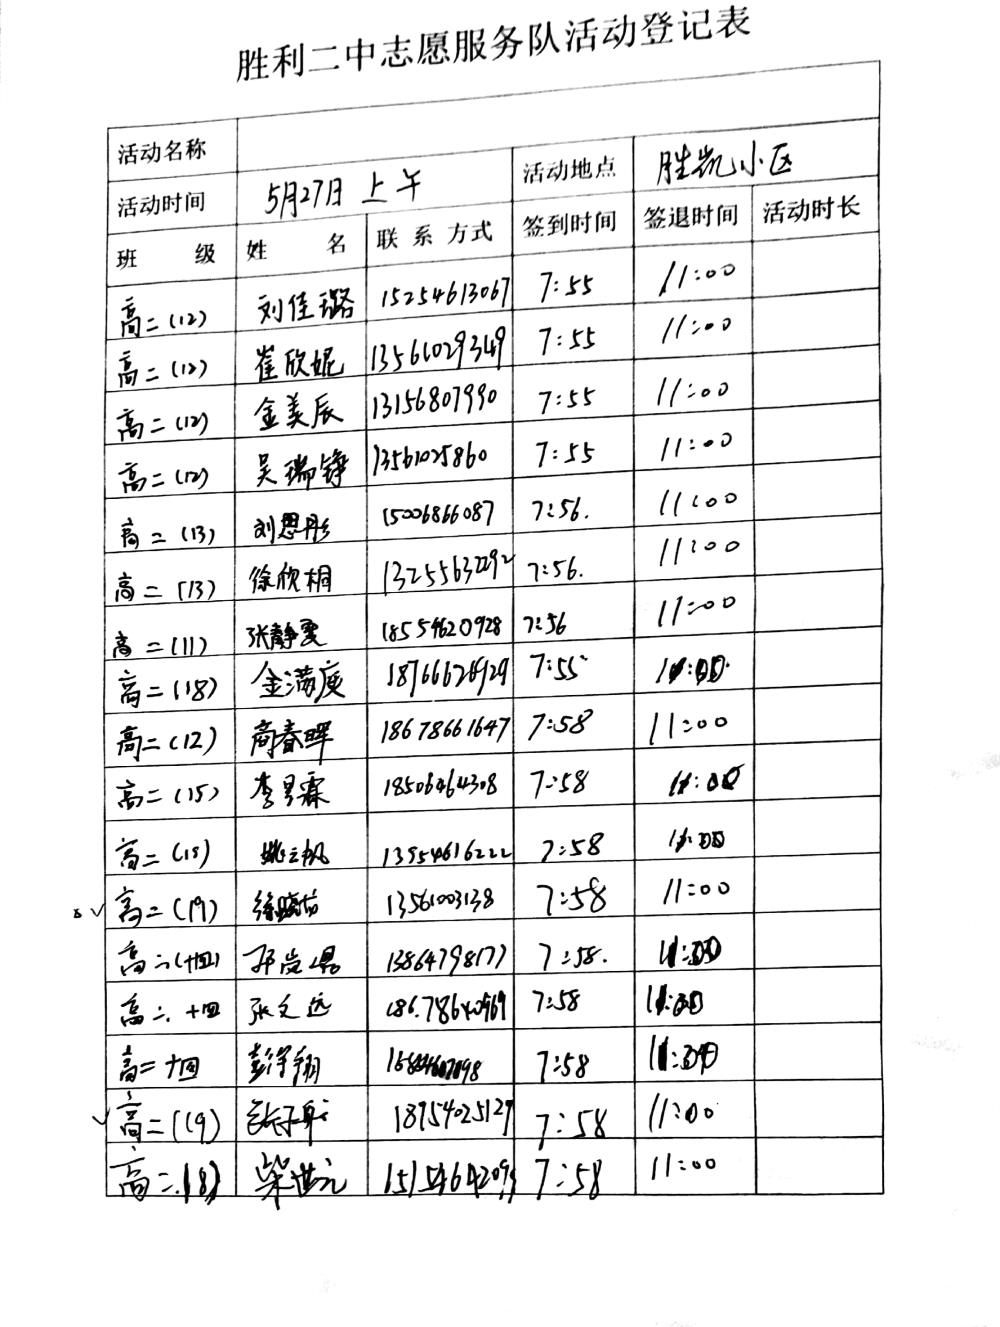 胜利二中志愿服务队活动登记表
活动名称
活动时间 5月27日 上午 活动地点 胜凯小区
班 级 姓 名 联系方式 签到时间 签退时间 活动时长
高二(12) 刘佳璐 15254613067 7:55 11:00
高二(12) 崔欣妮 13561029349 7:55 11:00
高二(12) 金美辰 13156807990 7:55 11:00
高二(12) 吴瑞铮 13561025860 7:55 11:00
高二(13) 刘思彤 15006866087 7:56. 11:00
高二(13) 徐欣桐 13255632292 7:56. 11:00
高二(11) 张静雯 18554620928 7:56 11:00
高二(18) 金满庭 18766626929 7:55 11:00
高二(12) 商春晖 18678661647 7:58 11:00
高二(15) 李昱霖 18506464308 7:58 11:00
高二(15) 姚云帆 13954616222 7:58 11:00
高二(19) 徐晓 13561003138 7:58 11:00
高二(十四) 13864798177 7:58. 11:00
高二、十四 张文远 18678640969 7:58 11:00
高二十四 彭宇翔 7:58 11:00
高二(19) 18954025129 7:58 11:00
高二.(8) 柴世元 7:58 11:00